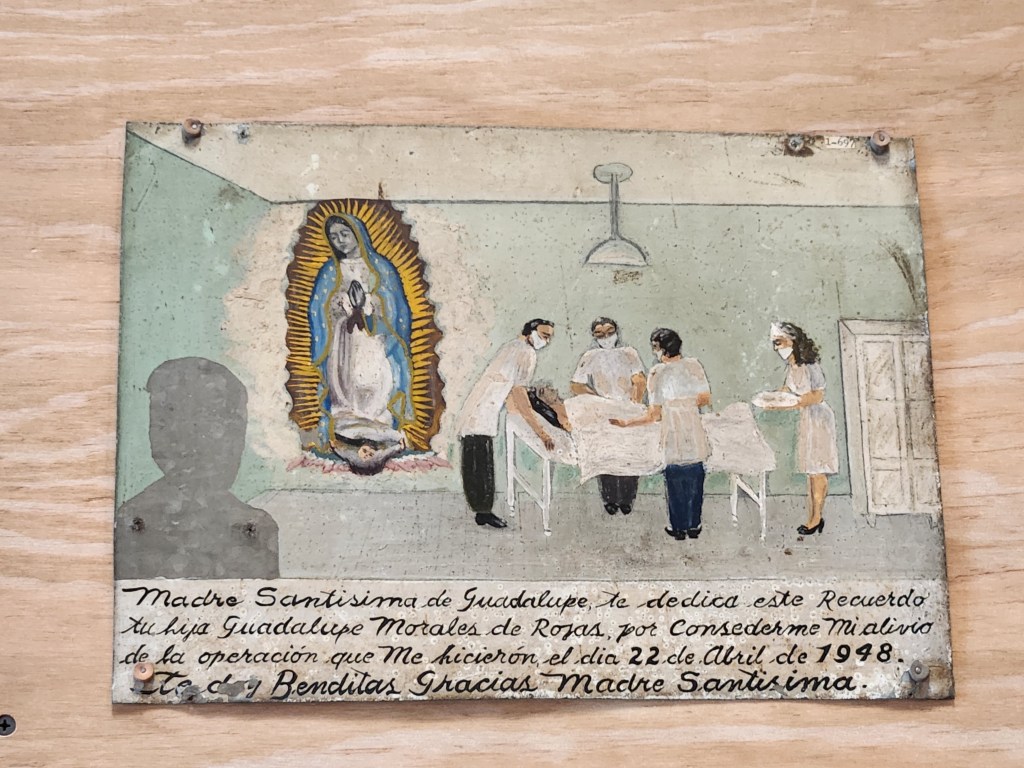 Madre Santisima de Guadalupe, te dedica este Recuerdo
tu hija Guadalupe Morales de Rojas, por Consederme Mi alivio
de la operación que Me hicierón, el dia 22 de Abril de 1948.
te doy Benditas Gracias Madre Santisima.